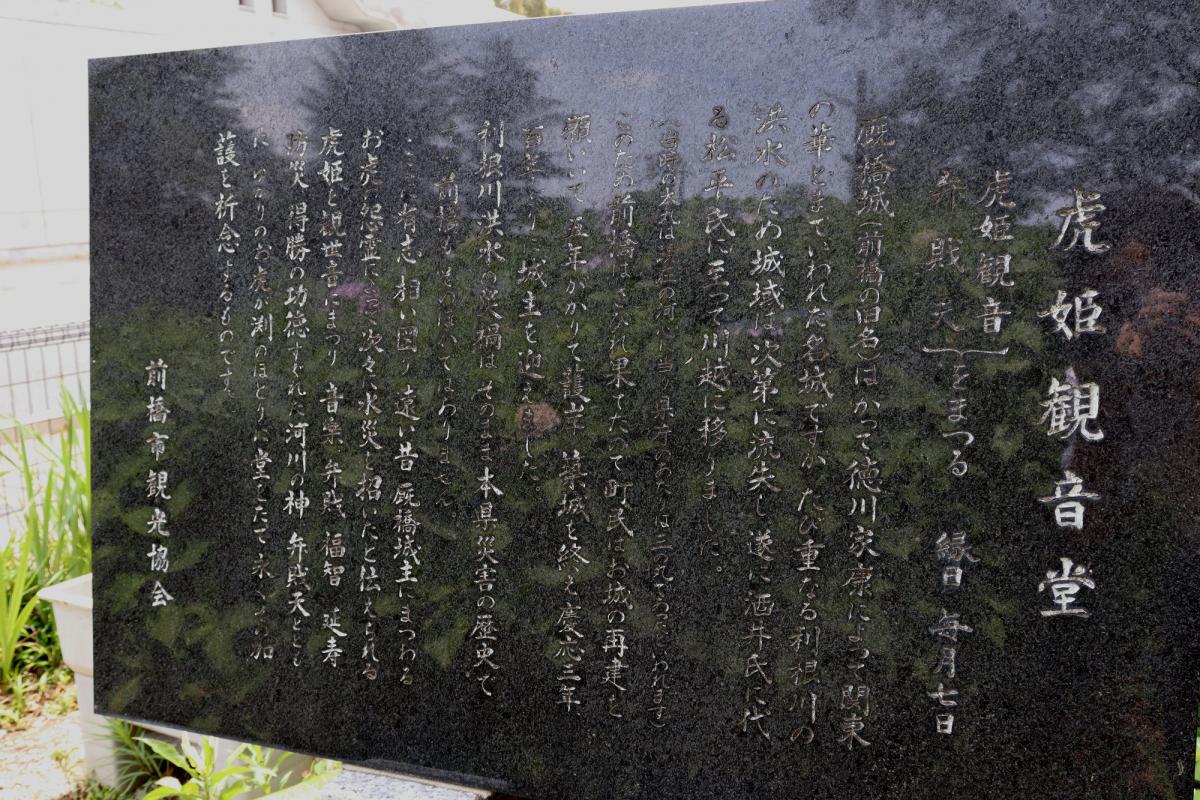 虎姫観音堂
虎姫観音
弁財天 をまつる 縁日 毎月七日
厩橋城(前橋の旧名)はかって徳川家康によって関東
の華とまでいわれた名城ですが たび重なる利根川の
洪水のため城域は次第に流失し遂に酒井氏に代
る松平氏に至って川越に移りました。
(当時の本丸は 今の河川に当り県庁のあたりは三の丸 といわれます)
このため前橋は さびれ果てたので町民はお城の再建を
願いいて 五年かかりて護岸 築城を終え慶応三年、
百年ぶりに 城主を迎えました。
利根川洪水の災禍は そのまま本県災害の歴史で
前橋も そのほいてはありません
ここに有志相い図り 遠い昔 厩橋城主にまつわる
お虎の怨霊に 次々に水災を招いたと伝えられる
虎姫を観世音にまつり 音楽 弁財 福智 延寿
防災 得勝の功徳すぐれた河川の神 弁財天ととも
に ゆかりのお虎が渕のほとりに堂をたて永くその加
護を祈念するものです。
前橋市観光協会